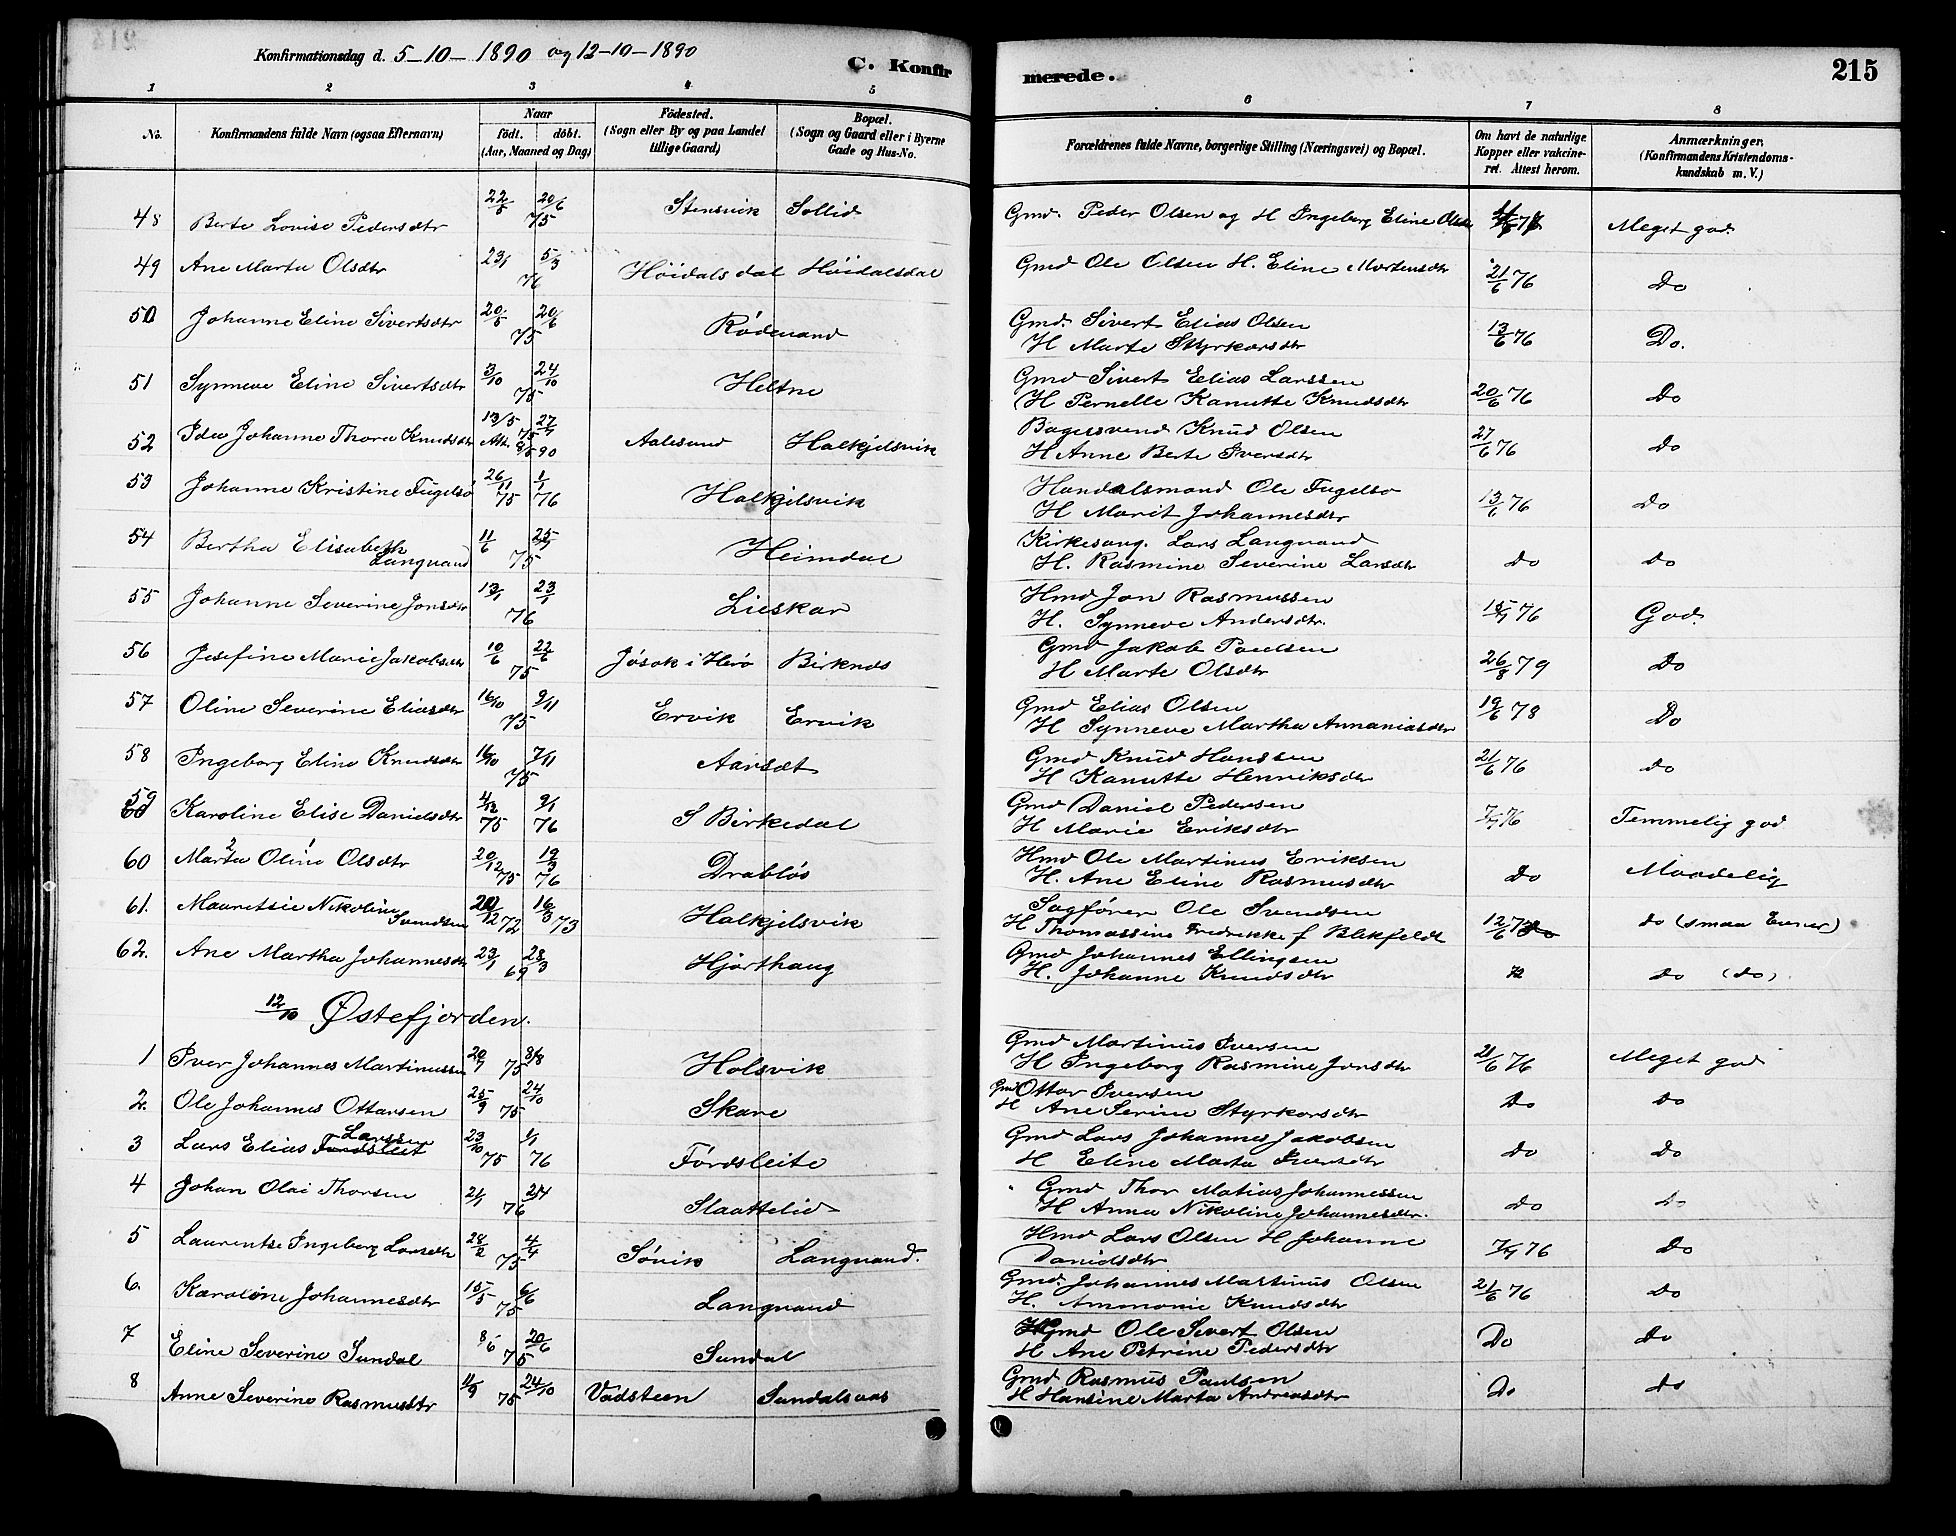 Konfirmationsdag d. 5-10-1890 og 12-10-1890
C. Konfirmerede.
215
1 2 3 4 5 6 7 8
No. Konfirmandens fulde Navn (ogsaa Efternavn) Naar født. døbt. (Aar, Maaned og Dag) Födested. (Sogn eller By og paa Landet tillige Gaard) Bopæl. (Sogn og Gaard eller i Byerne Gade og Hus-No. Forældrenes fulde Navne, borgerlige Stilling (Næringsvei) og Bopæl. Om havt de naturlige Kopper eller vakcineret. Attest herom. Anmærkninger. (Konfirmandens Kristendomskundskab m. V.)
48 Berte Lovise Pedersdtr 22/5 20/6 75 Stensvik Sollid Gmd. Peder Olsen og H Ingeborg Eline Meget god.
49 Ane Marta Olsdtr 23/1 5/3 76 Höidalsdal Höidalsdal Gmd Ole Olsen H. Eline Martensdtr 21/6 76 Do
50 Johanne Eline Sivertsdtr 20/5 20/6 75 Rödevand Gmd. Sivert Elias Olsen
H Marte Styrkorsdtr 13/6 76 Do.
51 Synneve Eline Sivertsdtr 3/10 24/10 75 Heltne Gmd Sivert Elias Larssen
H Pernelle Kanutte Knudsdtr 20/6 76 Do
52 Ida Johanne Thora Knudsdtr 13/5 75 27/7 Att. 9/5 90 Aalesund Halkjelsvik Bagersvend Knud Olsen
H Anne Berte Iversdtr 27/6 76 Do
53 Johanne Kristine Fugelsö 26/11 75 1/1 76 Halkjelsvik Handelsmand Ole Fugelsö
H Marit Johannesdtr 13/6 76 Do
54 Bertha Elisabeth Langvand 11/6 25/7 75 Heimdal Kirkesang. Lars Langvand
H. Rasmine Severine Larsdtr do do
55 Johanne Severine Jonsdtr 13/1 23/1 76 Lieskar Hmd Jon Rasmussen
H. Synneve Andersdtr. 15/7 76 God.
56 Josefine Marie Jakobsdtr 10/6 22/6 75 Jösok i Herö Birknes Gmd Jakob Poulsen
H Marte Olsdtr 26/8 79 Do
57 Oline Severine Eliasdtr 16/10 9/11 75 Ervik Ervik Gmd Elias Olsen
H Synneve Martha Annaniasdtr 19/6 78 Do
58 Ingeborg Eline Knudsdtr 16/10 7/11 75 Aarsæt Gmd Knud Hanssen
H Kanutte Henriksdtr 21/6 76 do
59 Karoline Elise Danielsdtr 4/12 75 9/1 76 S Birkedal Gmd Daniel Pedersen
H Marie Eriksdtr 7/7 76 Temmelig god
60 Marta Oline Olsdtr 20/12 75 19/3 76 Drabløs Hmd Ole Martinus Eriksen
H. Ane Eline Rasmusdtr Do Maadelig
61. Mauretsie Nikoline Svendsen 20/12 72 16/3 73 Halkjelsvik Sagförer Ole Svendsen
H Thomassine Fredrikke f Blikfeldt 12/6 do (smaa Evner)
62. Ane Martha Johannesdtr 23/1 28/3 69 Hjorthaug Gmd Johannes Ellingsen
H. Johanne Knudsdtr do (do)
12/10 Østefjorden.
1 Iver Johannes Martinussen 20/7 75 8/8 Holsvik Gmd Martinus Iversen
H Ingeborg Rasmine Jonsdtr 21/6 76 Meget god
2. Ole Johannes Ottarsen 25/9 75 24/10 Skare Gmd Ottar Iversen
H Ane Serine Styrkorsdtr Do do
3 Lars Elias Larssen 23/10 75 1/1 76 Fördsleite Gmd Lars Johannes Jakobsen
H Eline Marta Iversdtr Do Do
4 Johan Olai Thorsen 21/1 2/4 76 Slaattelid Gmd Thor Matias Johannessen
H Anna Nikoline Johannesdtr. do Do
5 Laurentse Ingeborg Larsdtr 28/2 4/4 75 Sövik Langvand. Hmd Lars Olsen H Johanne
Danielsdtr 7/7 76 Do
6. Karoline Johannesdtr 15/5 6/6 75 Langvand Gmd. Johannes Martinus Olsen
H. Ammonie Knudsdtr 21/6 76 Do
7 Eline Severine Sundal 8/5 20/6 75 Sundal Gmd Ole Sivert Olsen
H Ane Petrine Pedersdtr Do Do
8 Anne Severine Rasmusdtr 11/9 75 24/10 Vadsteen Sundalsaas Gmd Rasmus Paulsen
H Hansine Marta Andreasdtr Do do